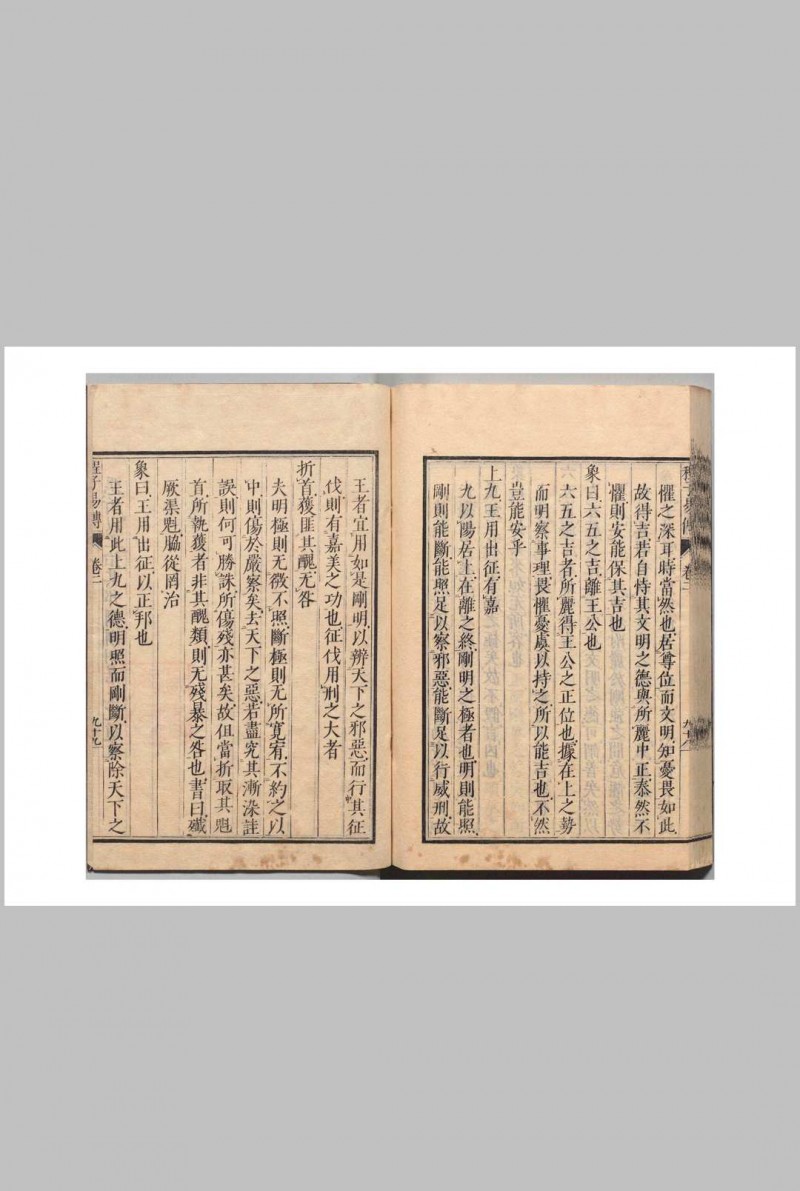 懼之深耳時當然也居尊位而文明知憂畏如此
故得吉若自恃其文明之德與所麗中正泰然不
懼則安能保其吉也
象曰六五之吉離王公也
六五之吉者所麗得王公之正位也據在上之勢
而明察事理畏懼憂虞以持之所以能吉也不然
豈能安乎
上九王用出征有嘉
九以陽居上在離之終剛明之極者也明則能照
剛則能斷能照足以察邪惡能斷足以行威刑故
程子易傳 卷二 九十九
王者宜用如是剛明以辨天下之邪惡而行其征
伐則有嘉美之功也征伐用刑之大者
折首獲匪其醜无咎
夫明極則无微不照斷極則无所寬宥不約之以
中則傷於嚴察矣去天下之惡若盡究其漸染詿
誤則何可勝誅所傷殘亦甚矣故但當折取其魁
首所執獲者非其醜類則无殘暴之咎也書曰殲
厥渠魁脇從罔治
象曰王用出征以正邦也
王者用此上九之德明照而剛斷以察除天下之